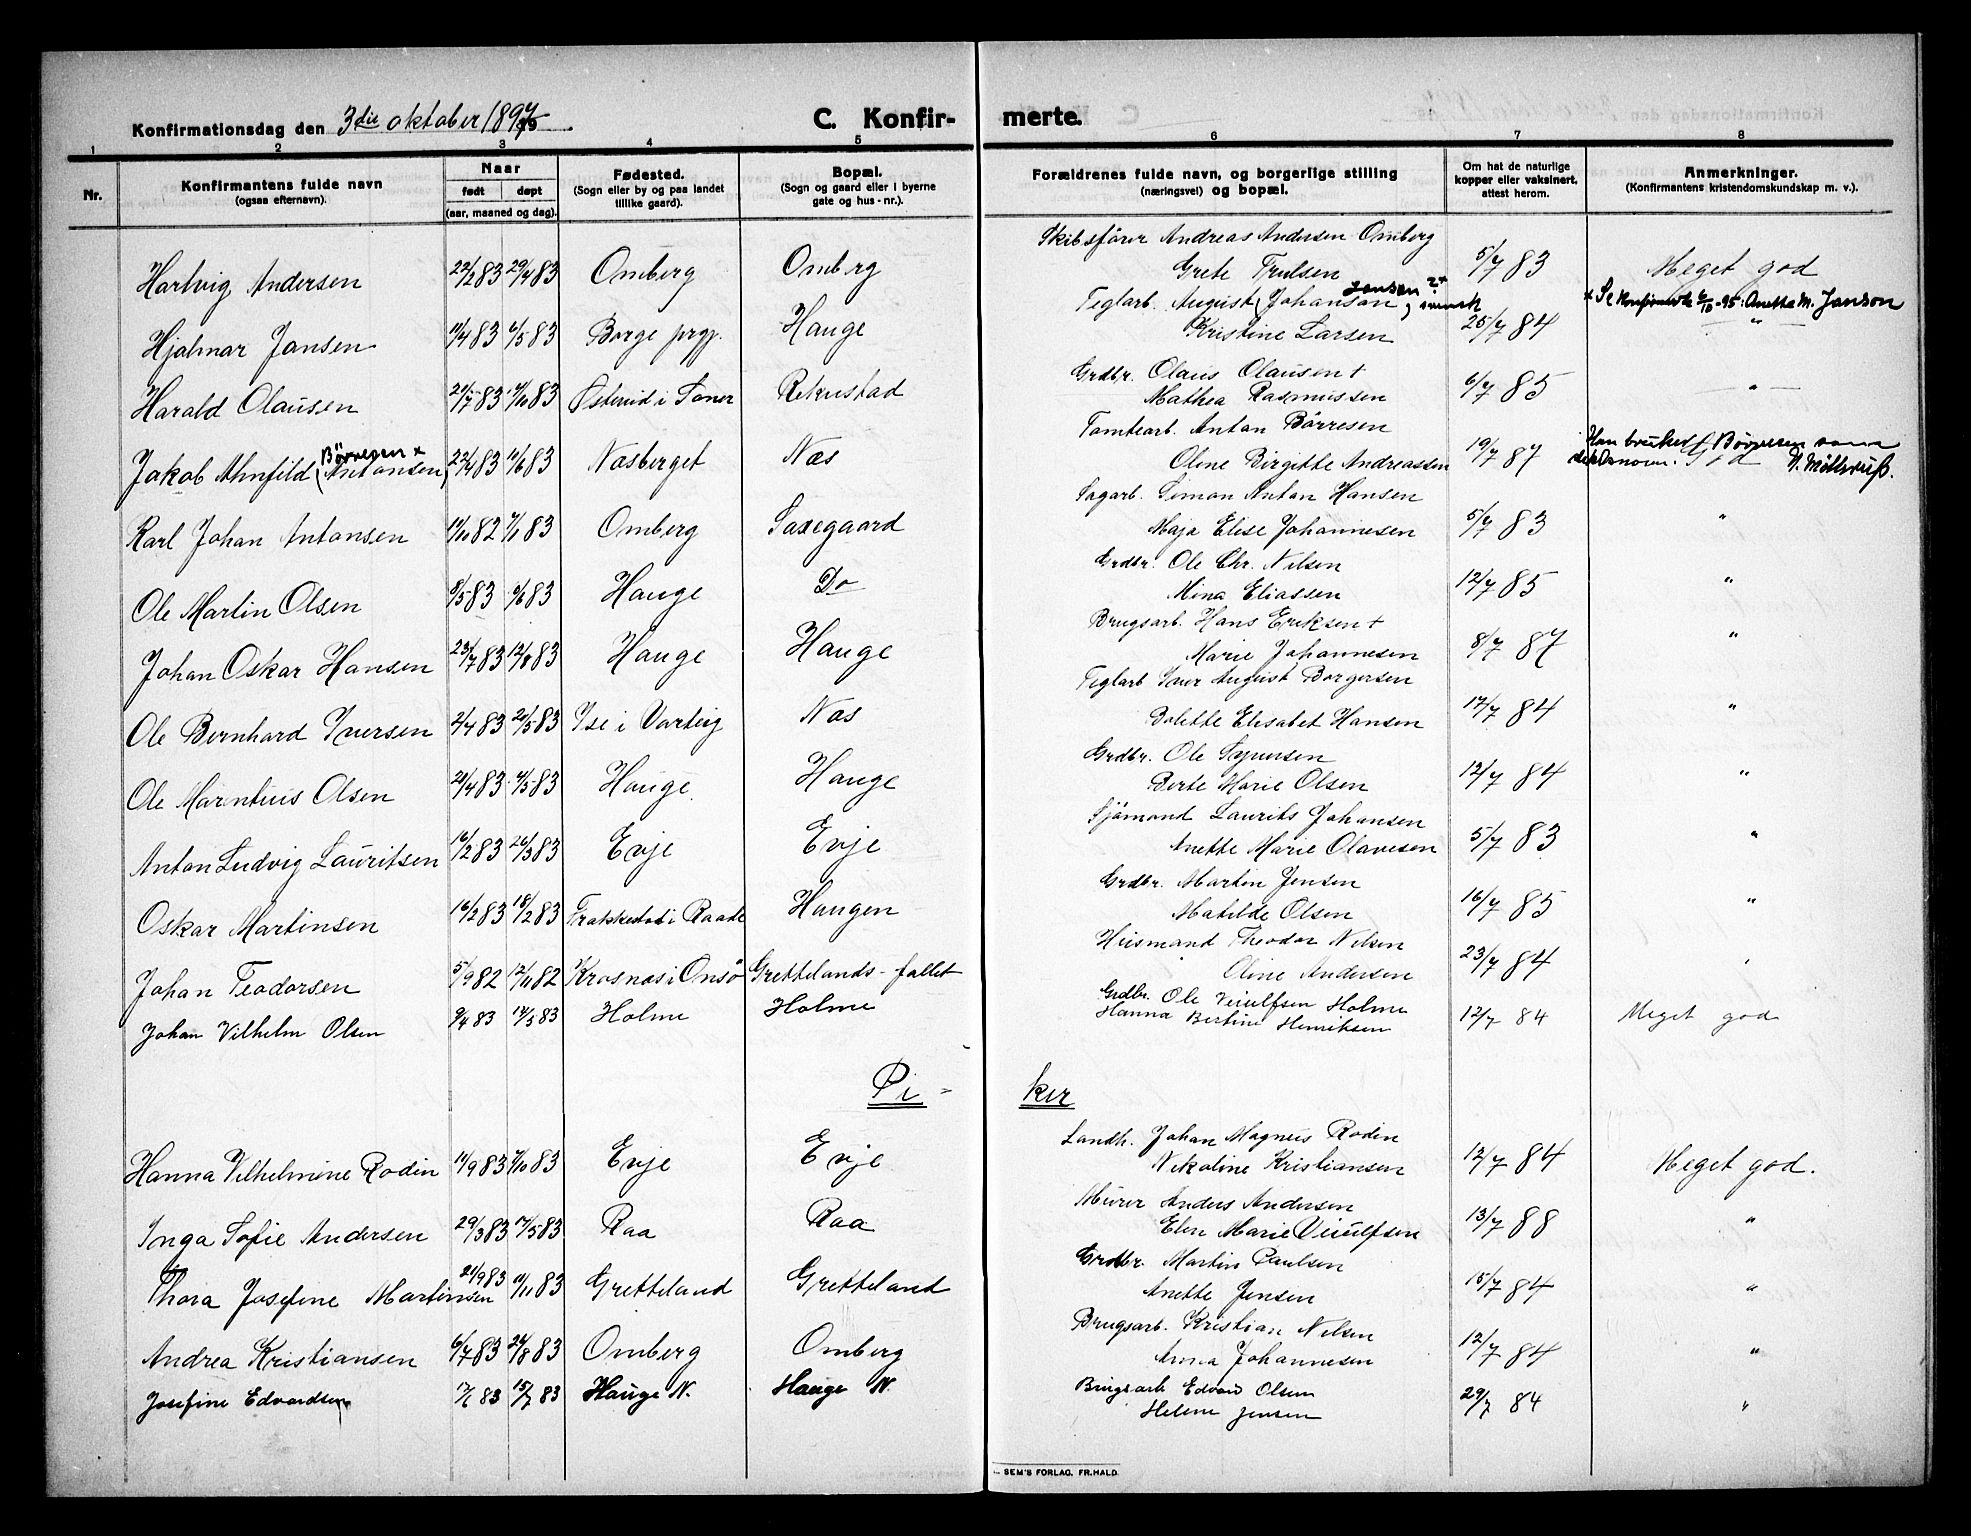 Konfirmationsdag den 3die oktober 1897
C. Konfir- merte.
1 2 3 4 5 6 7 8
Nr.
Konfirmantens fulde navn (ogsaa efternavn).
Naar født døpt (aar, maaned og dag).
Fødested. (Sogn eller by og paa landet tillike gaard).
Bopæl. (Sogn og gaard eller i byerne gate og hus-nr.).
Forældrenes fulde navn, og borgerlige stilling (næringsvei) og bopæl.
Om hat de naturlige kopper eller vaksinert, attest herom.
Anmerkninger. (Konfirmantens kristendomskundskap m. v.).
Skibsfører Andreas Andersen Omberg
Hartvig Andersen 22/2 83 29/4 83 Omberg Omberg Grete Trulsen 5/7 83 Meget god
Teglarb. August (Johanson Jansen ?+ svensk + Se Konfirmerte 6/10-95: Anetta M. Janson
Hjalmar Jansen 11/4 83 6/5 83 Borge prgj. Hauge Kristine Larsen 25/7 84 — " —
Grdbr. Olaus Olausen +
Harald Olausen 21/7 83 14/10 83 Østerud i Soner Rekustad Mathea Rasmussen 6/7 85 — " —
Tomtearb. Anton Börresen
Jakob Ahnfeld (Antonsen) Börresen + 22/4 83 11/6 83 Næsberget Næs Oline Birgitte Andreassen 19/7 87 Han bruket + Börresen som God N. Mölleruß.
Sagarb. Simon Anton Hansen
Karl Johan Antonsen 14/10 82 7/1 83 Omberg Saxegaard Maja Elise Johannesen 5/7 83 "
Grdbr. Ole Chr. Nilsen
Ole Martin Olsen 8/5 83 9/6 83 Hauge Do Mina Eliassen 12/7 85 "
Brugsarb. Hans Eriksen +
Johan Oskar Hansen 23/7 83 12/8 83 Hauge Hauge Marie Johannesen 8/7 87 "
Teglarb Iver August Borgersen
Ole Bernhard Iversen 2/4 83 20/5 83 Ise i Varteig Næs Bolette Elisabet Hansen 17/7 84 "
Grdbr. Ole Syversen
Ole Marentius Olsen 21/4 83 4/5 83 Hauge Hauge Berte Marie Olsen 12/7 84 "
Sjömand Laurits Johansen
Anton Ludvig Lauritsen 16/2 83 26/3 83 Evje Evje Anette Marie Olavesen 5/7 83 "
Grdbr. Martin Jensen
Oskar Martinsen 16/2 83 18/2 83 i Raade Haugen Matilde Olsen 16/7 85 "
Husmand Theodor Nilsen
Johan Teodorsen 5/9 82 12/11 82 Krosnæs i Onsö Grettelands-fallet Oline Andersen 23/7 84 "
Grdbr. Ole Veiulfsen Holme
Johan Vilhelm Olsen 9/4 83 14/5 83 Holme Holme Hanna Bertine Henriksen 12/7 84 Meget god
Pi- ker
Landh. Johan Magnus Rodin
Hanna Vilhelmine Rodin 11/9 83 7/10 83 Evje Evje Nikoline Kristiansen 12/7 84 Meget god.
Murer Anders Andersen
Inga Sofie Andersen 29/3 83 17/5 83 Raa Raa Elen Marie Veiulfsen 13/7 88 "
Grdbr. Martin Paulsen
Thora Josefine Martinsen 21/9 83 11/11 83 Gretteland Gretteland Anette Jensen 15/7 84 "
Brugsarb. Kristian Nilsen
Andrea Kristiansen 6/7 83 24/8 83 Omberg Omberg Anna Johannesen 12/7 84 "
Brugsarb Edvard Olsen
Josefine Edvardsen 17/1 83 15/7 83 Hauge N. Hauge N. Helene Jensen 29/7 84 "
SEM'S FORLAG, FR.HALD